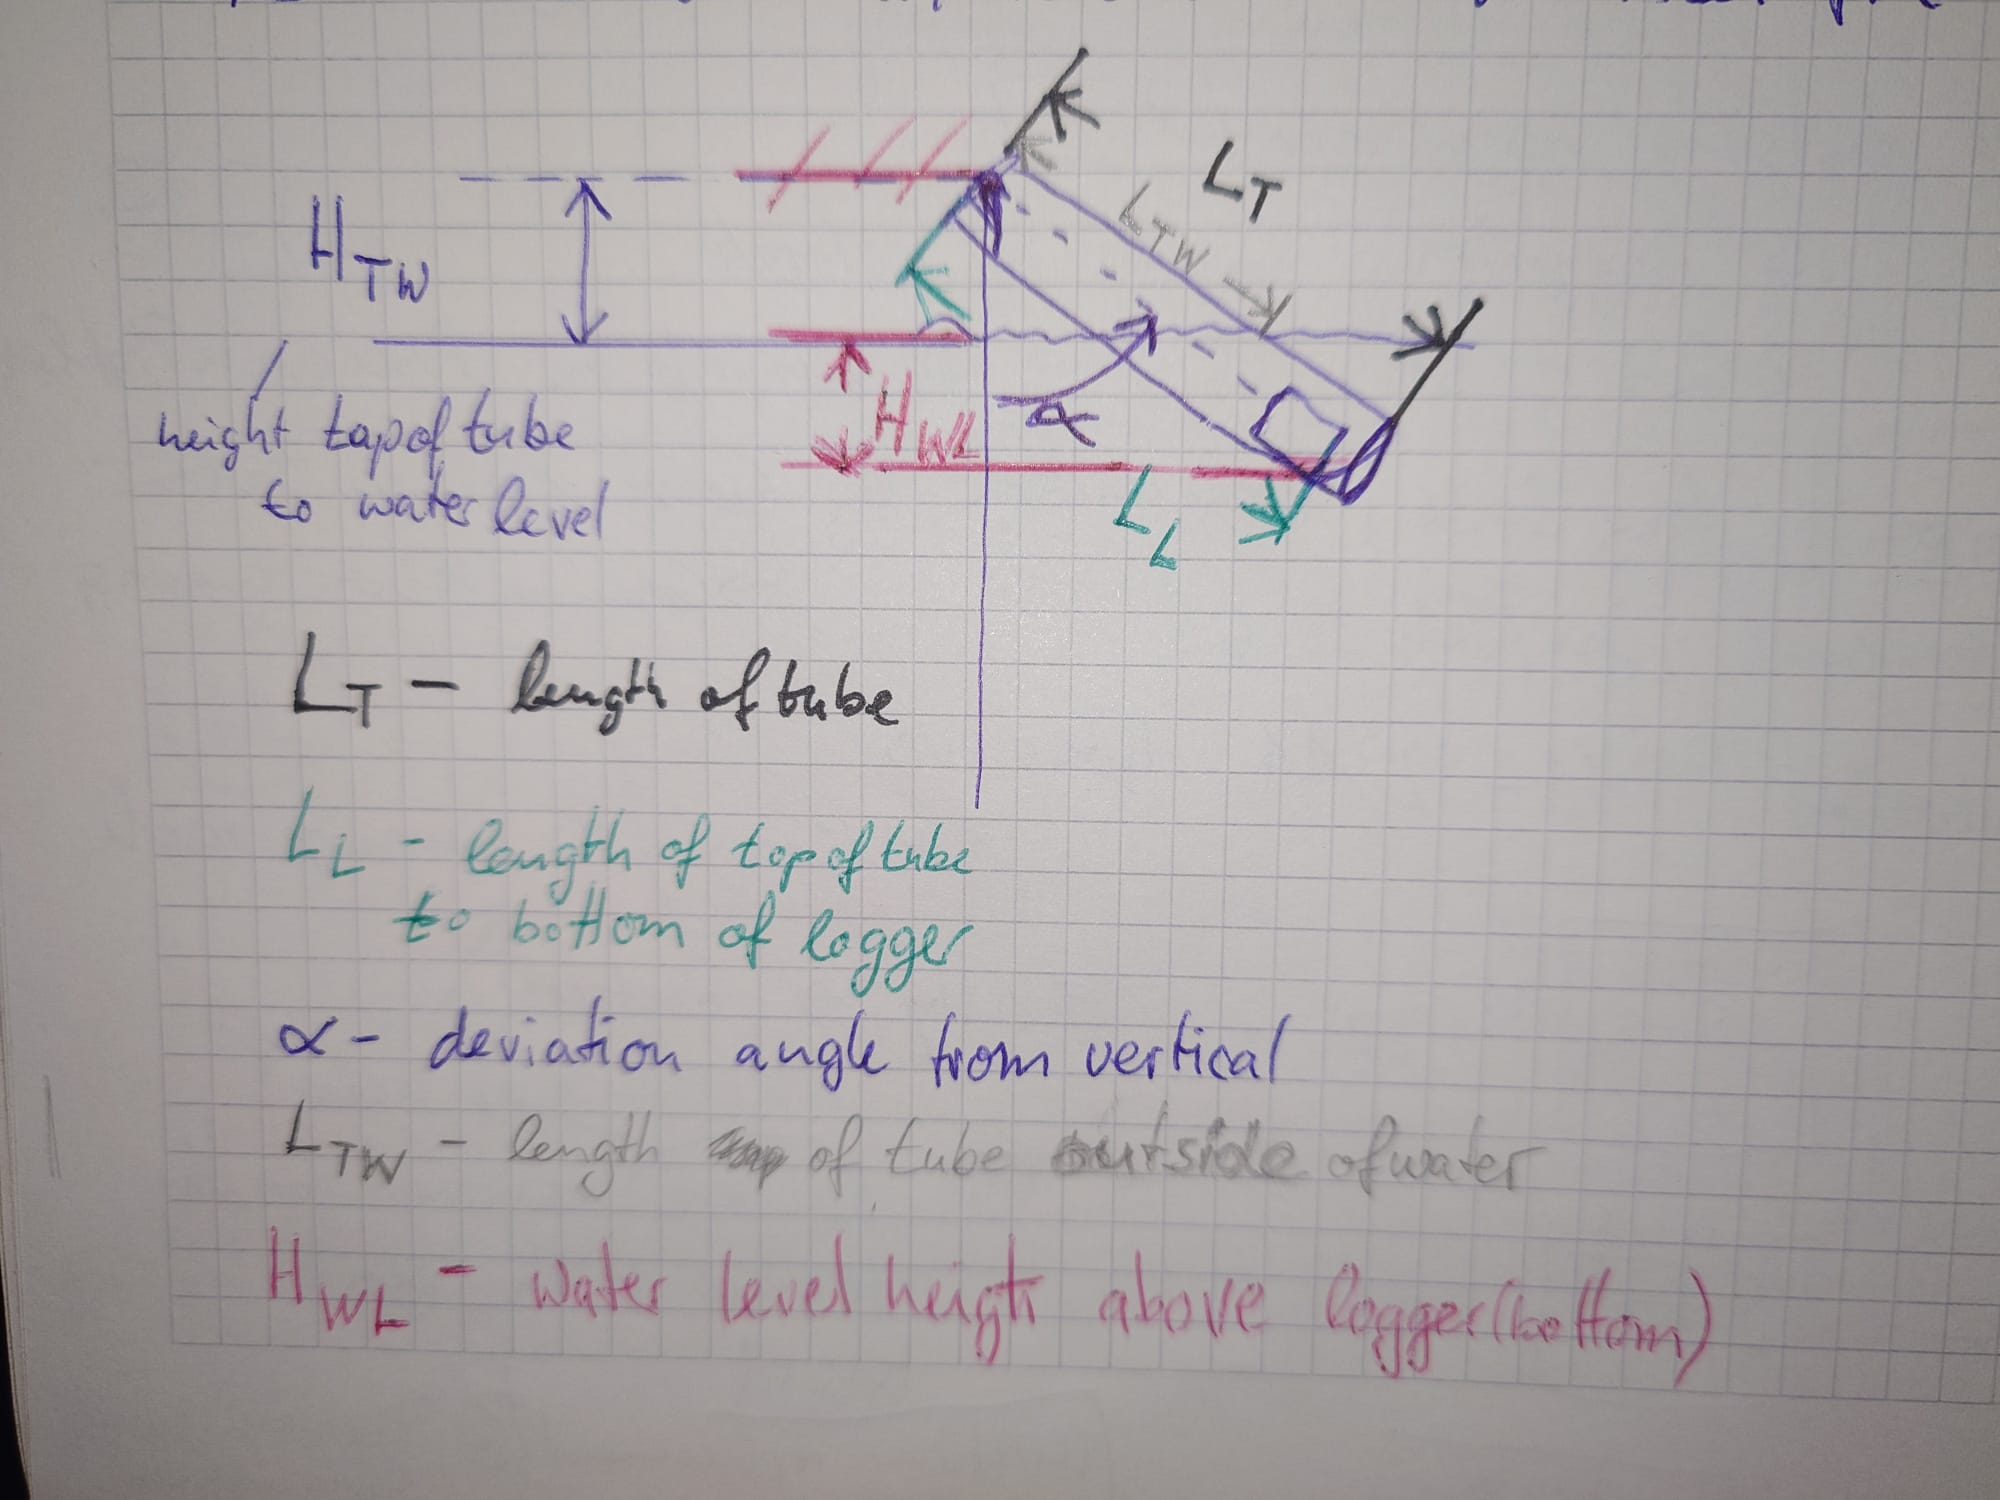 L_T
L_TW
H_TW
α
H_WL
height top of tube
to water level
L_L
L_T - length of tube
L_L - length of top of tube
to bottom of logger
α - deviation angle from vertical
L_TW - length of tube outside of water
H_WL - water level heigth above logger (bottom)